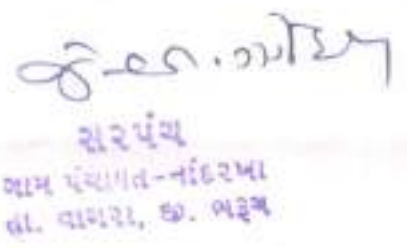 સરપંચ
ગ્રામ પંચાયત-નાંદરખા
તા. વાગરા, જી. ભરૂચ